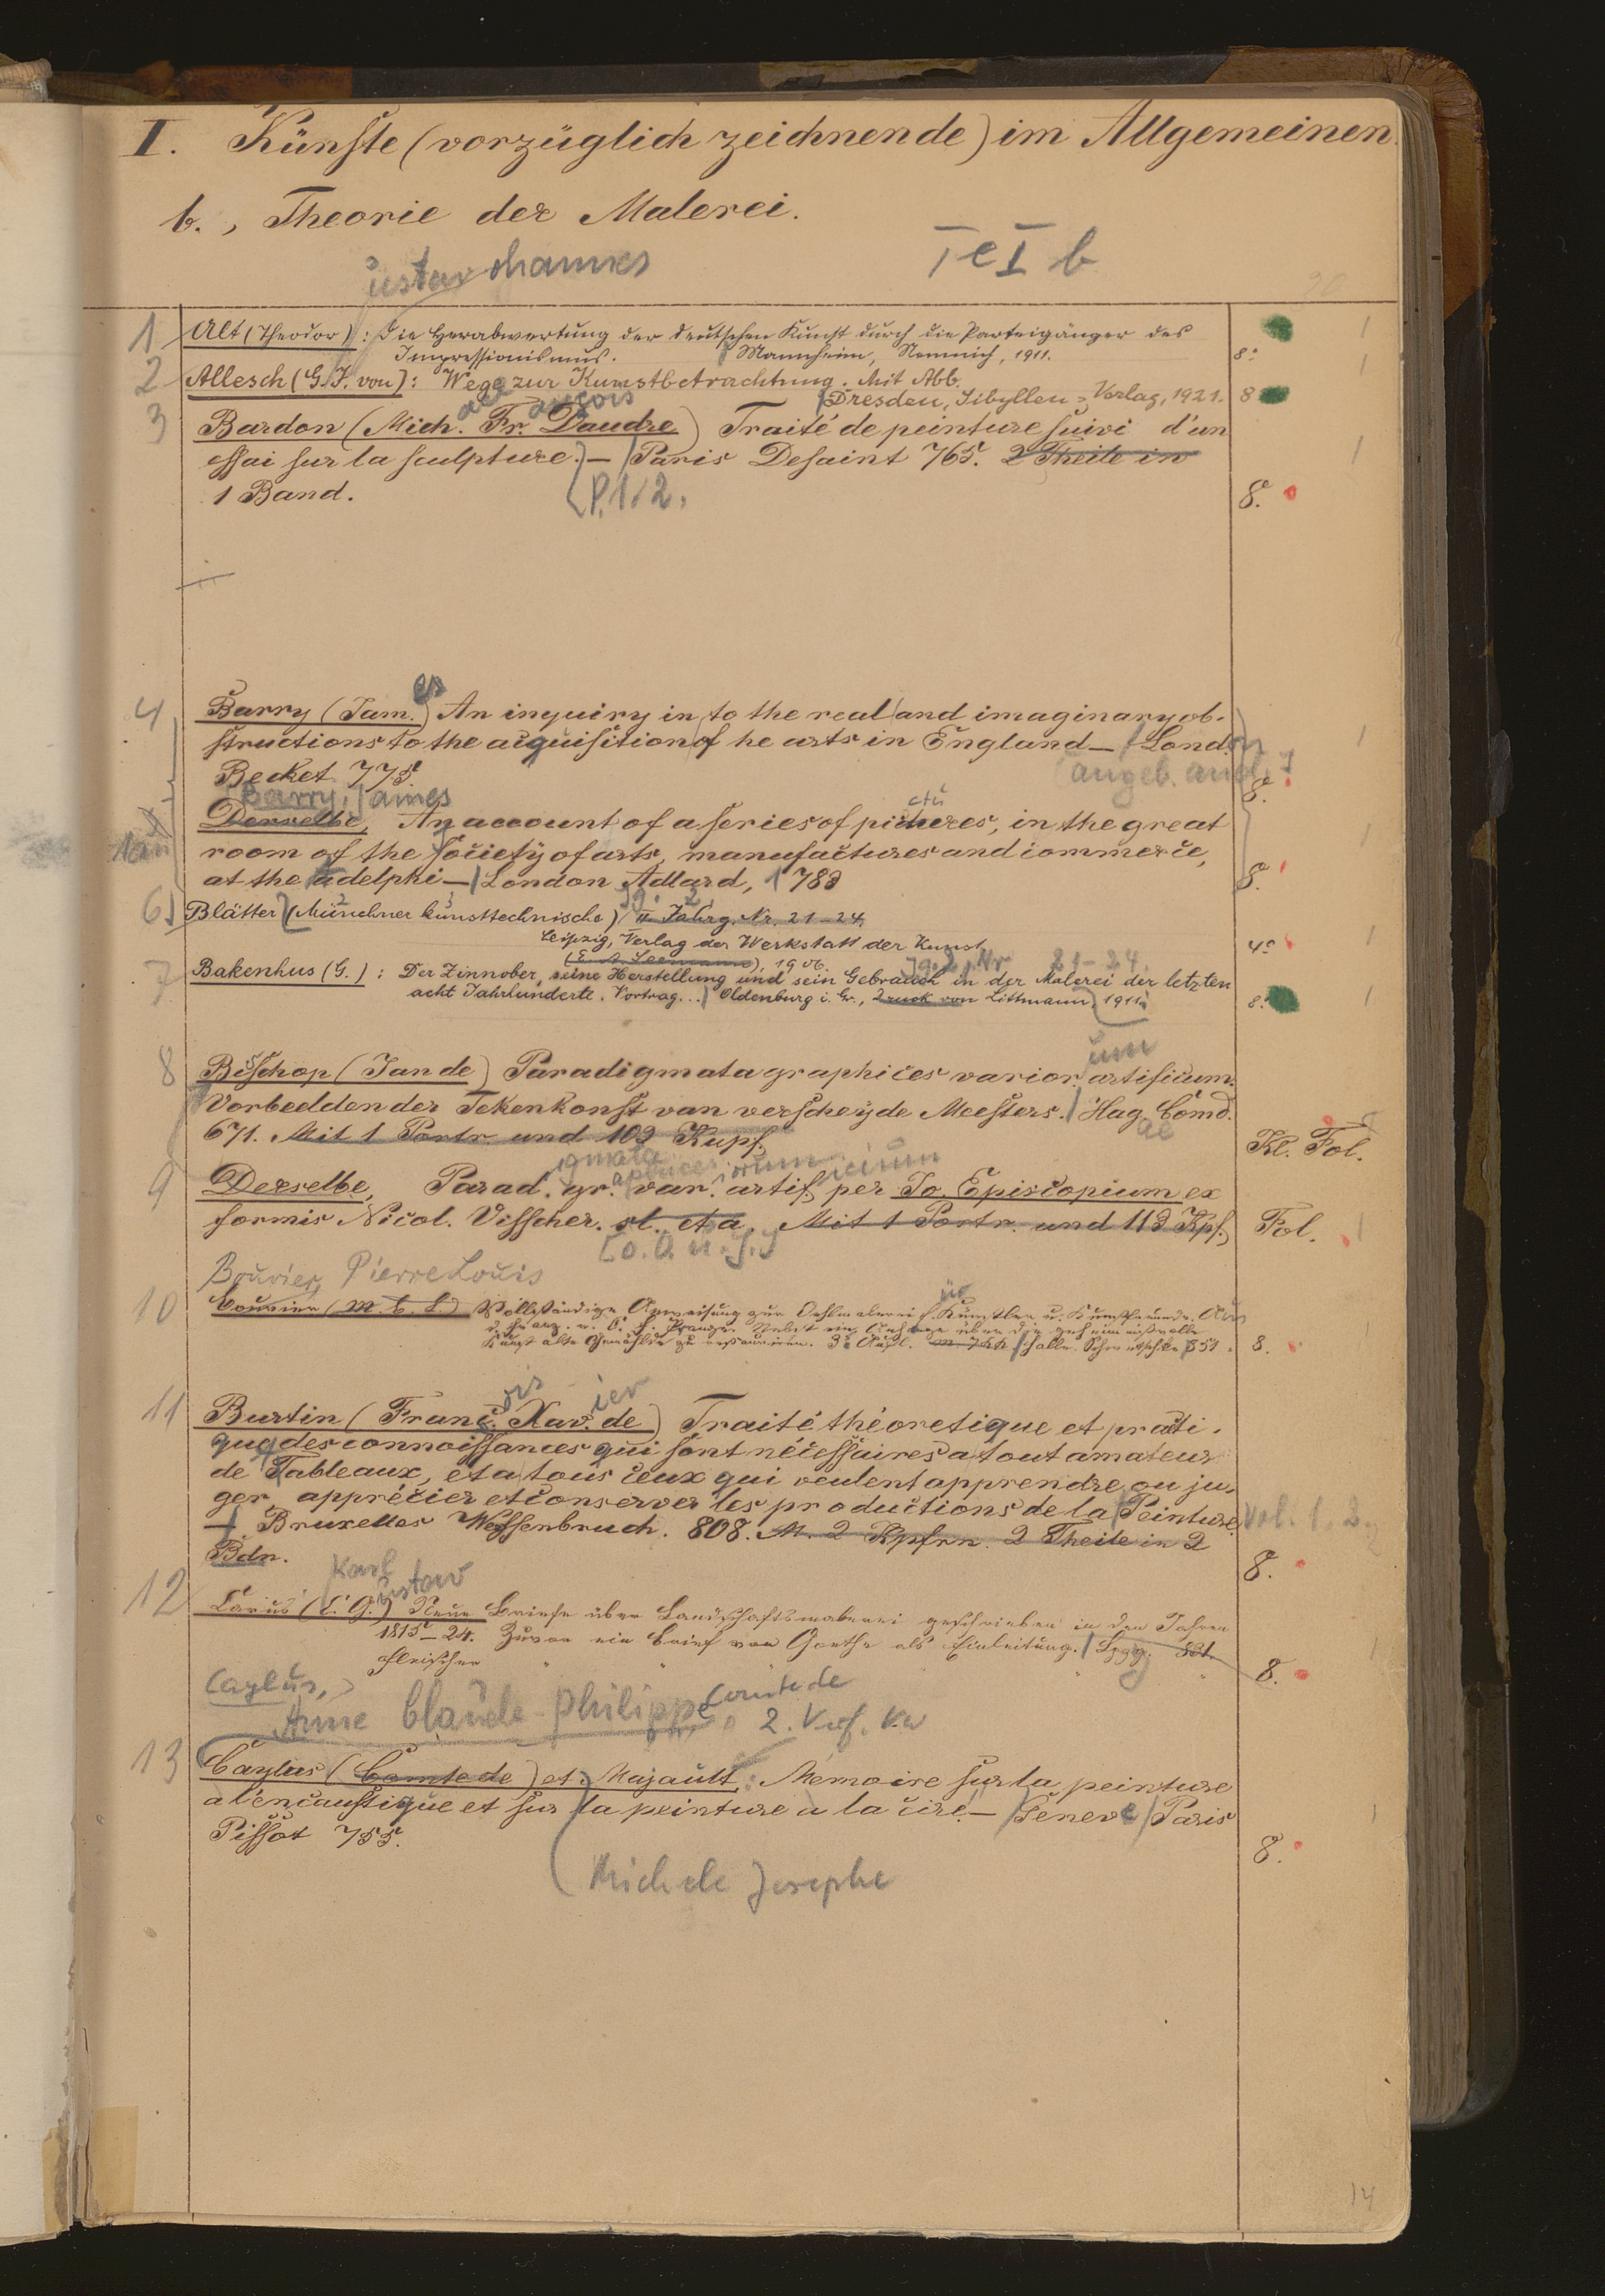 I. Künste (vorzüglich zeichnende) im Allgemeinen.
b., Theorie der Malerei.
Te I b
ustav ohannes
1 Alt (Theodor): Die Herabwertung der deutschen Kunst durch die Parteigänger des
Impressionismus. Mannheim, Nemnich, 1911. 8° 1
2 Allesch (G. J. von): Wege zur Kunstbetrachtung. Mit Abb. 1
Dresden, Sibyllen-Verlag, 1921. 8
ançois
3 Bardon (Mich. Fr. Daudre) Traité de peinture suivi d'un
essai sur la sculpture. — Paris Desaint 765. 2 Theile in 1
1 Band. (P. 1. 2. 8.
es
4 Barry (Jam.) An inquiry in to the real and imaginary ob-
structions to the acquisition of he arts in England — Lond. 1
Becket 775 (angeb. 8.
Barry, James
Derselbe, An account of a series of pictures, in the great 1
room of the society of arts, manufactures and commerce,
at the adelphi — London Adlard, 783 8.
Jg. 2.
6 Blätter (Münchner kunsttechnische) II. Jahrg. Nr. 21–24.
Leipzig, Verlag der Werkstatt der Kunst 4° 1
(E. A. Seemann), 1906. Jg. 2, Nr 21–24.
7 Bakenhus (G.): Der Zinnober, seine Herstellung und sein Gebrauch in der Malerei der letzten
acht Jahrhunderte. Vortrag... Oldenburg i. Gr., Druck von Littmann, 1911. 8° 1
um
8 Bisschop (Jan de) Paradigmata graphices varior. artificum.
Vorbeelden der Tekenkonst van verscheyde Meesters. Hag. Comd.
ae
671. Mit 1 Portr. und 102 Kupf. Kl. Fol.
igmata aphices orum icium
9 Derselbe, Parad. gr. var. artif. per Jo. Episcopium ex
formis Nicol. Visscher. sl. et a. Mit 1 Portr. und 113 Kpf. Fol. 1
[o. O. u. J.]
Bouvier, Pierre Louis
10 Bouvier (M. P. L.) Vollständige Anweisung zur Oehlmalerei f. Künstler u. Kunstfreunde. Aus
d. Franz. v. C. F. Prange. Nebst ein. Anhange über die geheimnißvolle
Kunst alte Gemählde zu restauriren. 3e Aufl. Halle. Schwetschke 851. 8. 1
ois ier
11 Burtin (Franc. Xav. de) Traité théoretique et prati-
que des connoissances qui sont nécessaires a tout amateur
de Tableaux, et a tous ceux qui veulent apprendre ou ju-
ger, apprécier et conserver les productions de la Peinture. Vol. 1. 2.
— Bruxelles Weissenbruch. 808. M. 2 Kpfrn. 2 Theile in 2
Bdn. 8.
Karl ustav
12 Carus (C. G.) Neun Briefe über Landschaftsmalerei geschrieben in den Jahren
1815–24. Zuvor ein Brief von Goethe als Einleitung. Lpzg. 831. 1
Fleischer 8.
Caylus,
Anne Claude Philippe Comte de
2. Verf. Kw
13 Caylus (Comte de) et Majault: Mémoire sur la peinture
a l'encaustique et sur la peinture a la cire. — Geneve Paris 1
Pissot 755. 8.
(Michele Josephe
14